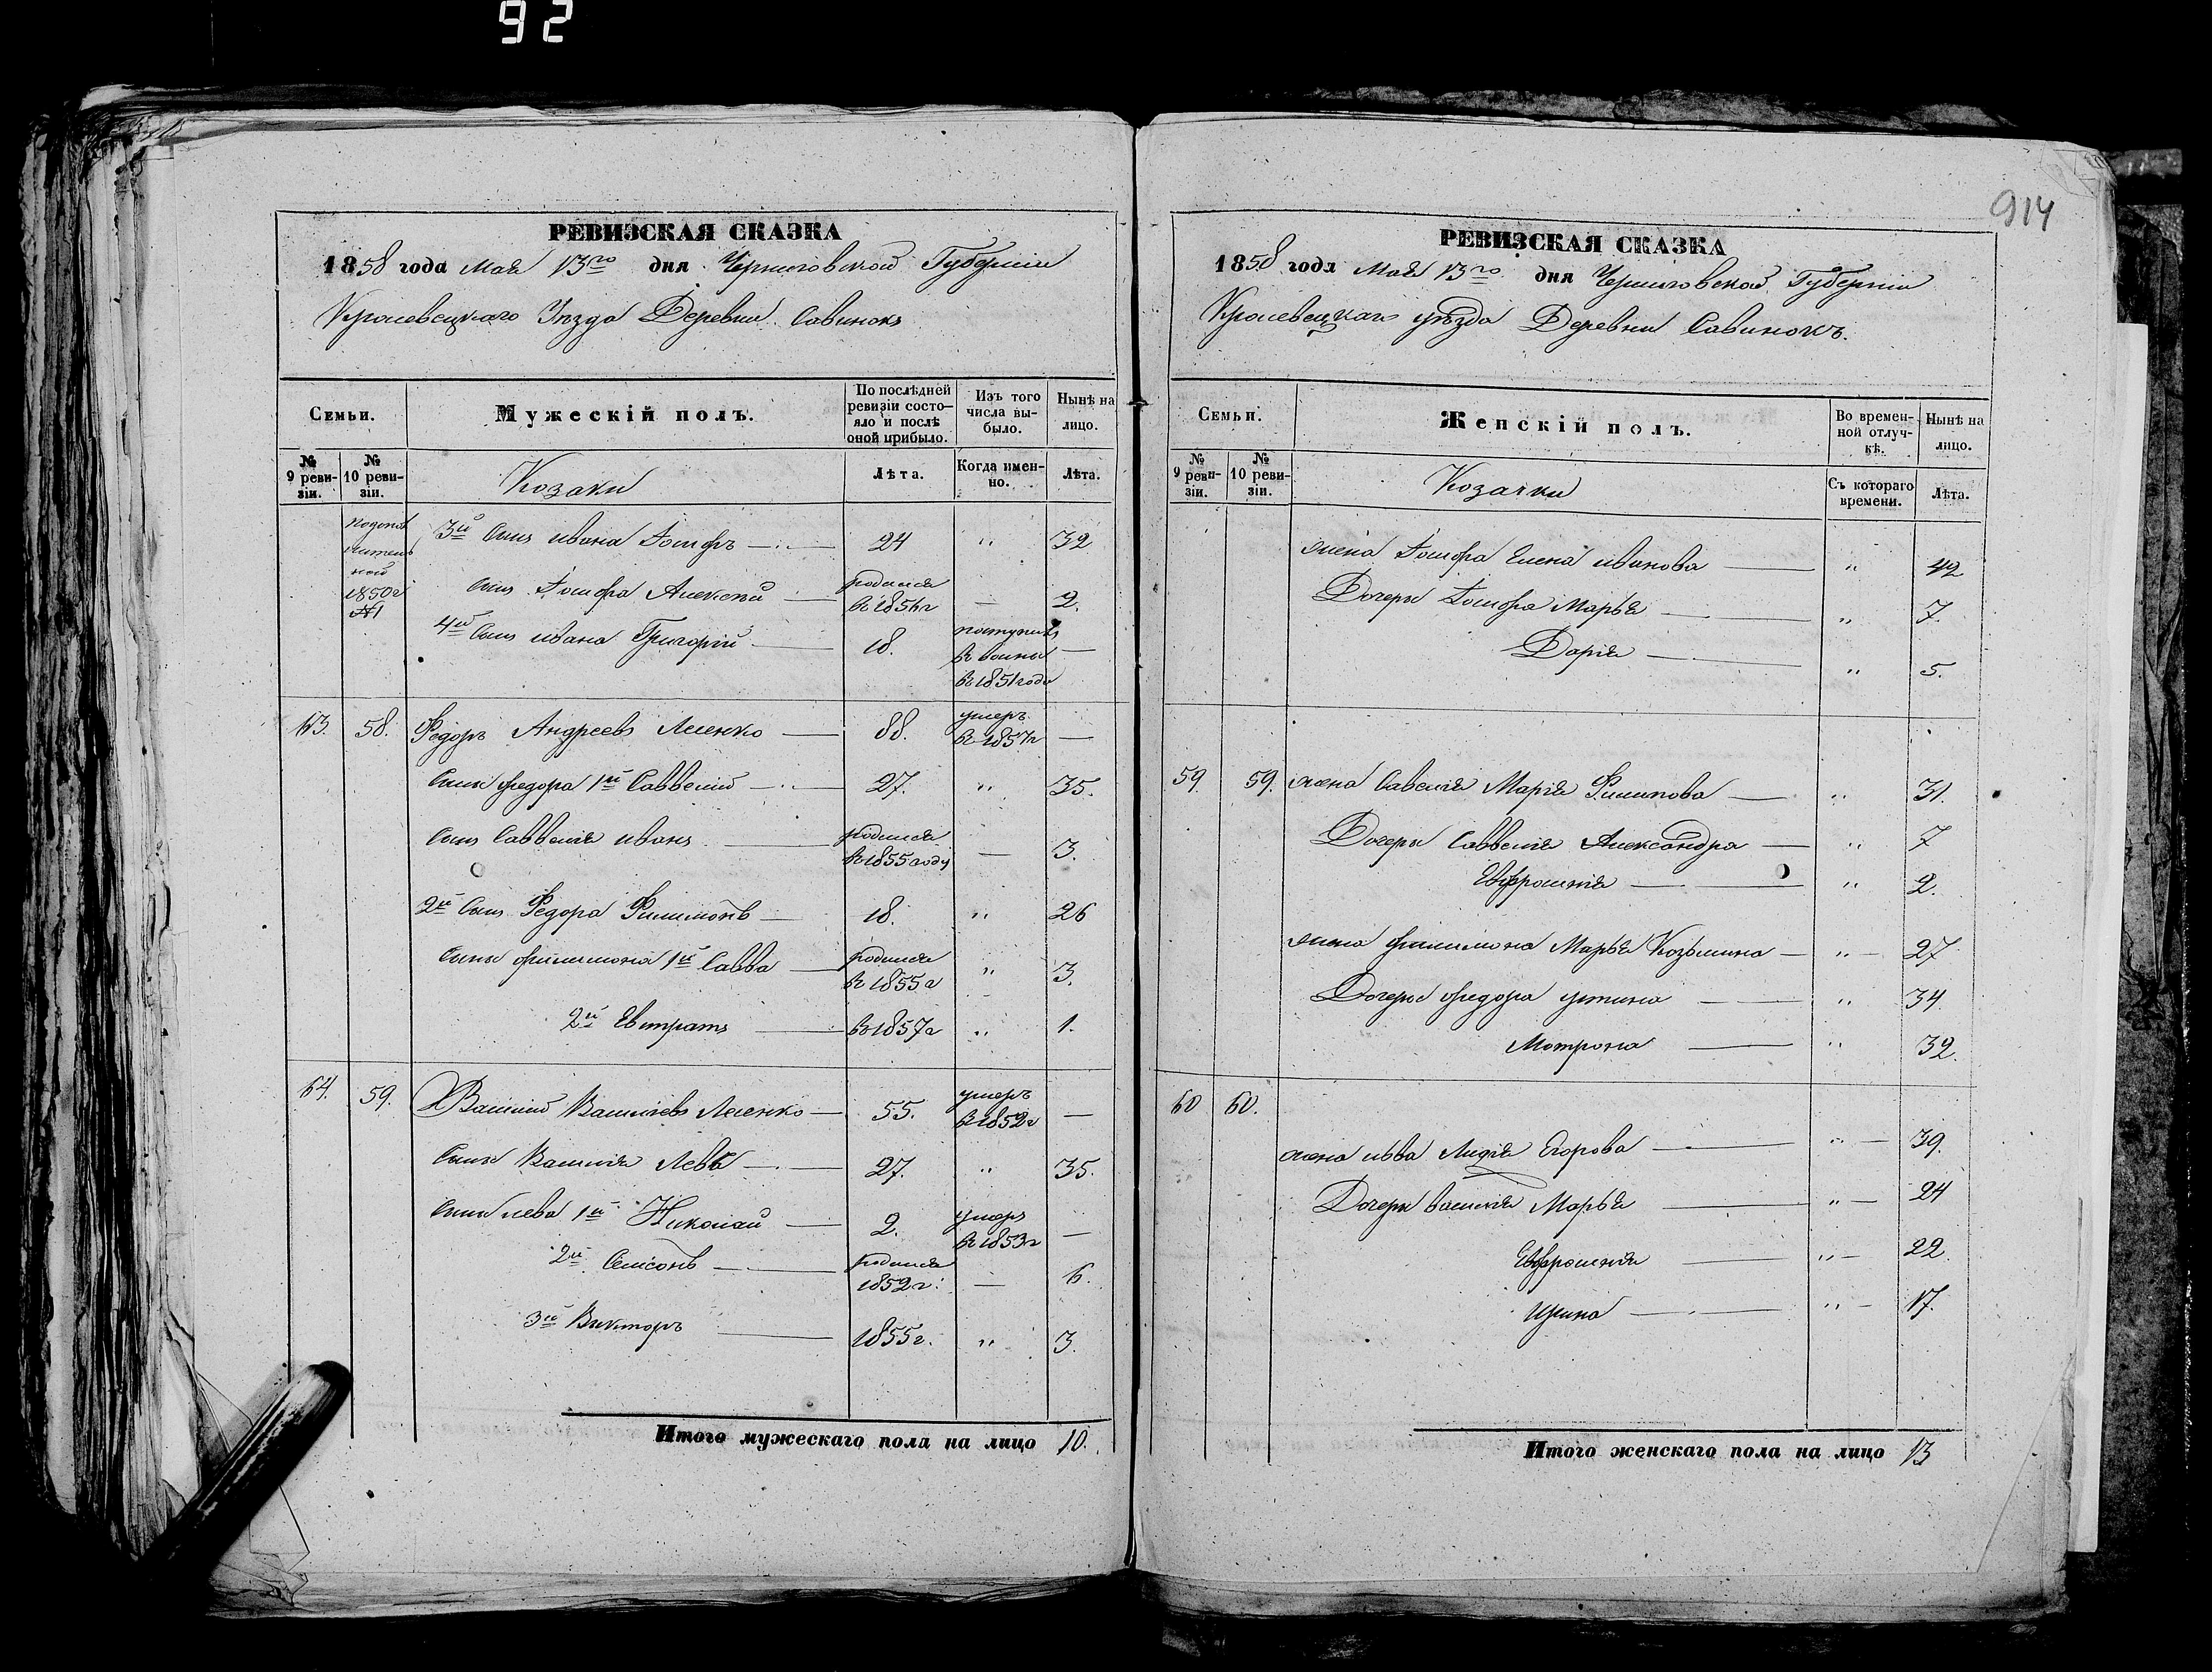 92
914
РЕВИЗСКАЯ СКАЗКА
1858 года Мая 13го дня Черниговской Губерніи
Кролевецкаго Уѣзда Деревни Савинокъ
Семьи. Мужескій полъ. По послѣдней ревизіи состо-яло и послѣ оной прибыло. Изъ того числа вы-было. Нынѣ на лицо.
№ 9 реви-зіи. № 10 реви-зіи. Козаки Лѣта. Когда имен-но. Лѣта.
1850г №1
3й Сынъ ивана 24 " 32
Сынъ Алексѣй родился в 1856г — 2.
4й Сынъ ивана Григорій 18. поступилъ в 1851 году —
63. 58. Федоръ Андреевъ Лесенко 88. умеръ в 1857г —
Сыны федора 1й Савелій 27. " 35.
Сынъ Саввелія иванъ родился в 1855 году — 3.
2й Сынъ Федора Филимонъ 18. " 26
Сыны филимона 1й Савва родился в 1855г " 3.
2й Евтратъ в 1857г " 1.
64. 59. Василій Васильевъ Лесенко 55. умеръ в 1852г —
Сынъ Василія Левъ 27. " 35.
Сыны лева 1й Николай 2. умеръ в 1853г —
2й родился 1852г. — 6.
3й Викторъ 1855г. " 3.
Итого мужескаго пола на лицо 10.
РЕВИЗСКАЯ СКАЗКА
1858 года Мая 13го дня Черниговской Губерніи
Кролевецкаго уѣзда Деревни Савинокъ.
Семьи. Женскій полъ. Во времен-ной отлуч-кѣ. Нынѣ на лицо.
№ 9 реви-зіи. № 10 реви-зіи. Козачки Съ котораго времени. Лѣта.
жена Елена иванова " 42
Дочери Марья " 7.
Дарія " 5.
59. 59. жена Савелія Марія Филипова " 31.
Дочери Саввелія Александра " 7
Евфросинія " 2.
жена филимона Марья Козьмина " 27
Дочери федора устина " 34.
Мотрона " 32.
60 60.
жена льва Лидія Егорова " 39.
Дочери василія Марья " 24
Евфросинія " 22.
Ирина " 17.
Итого женскаго пола на лицо 13